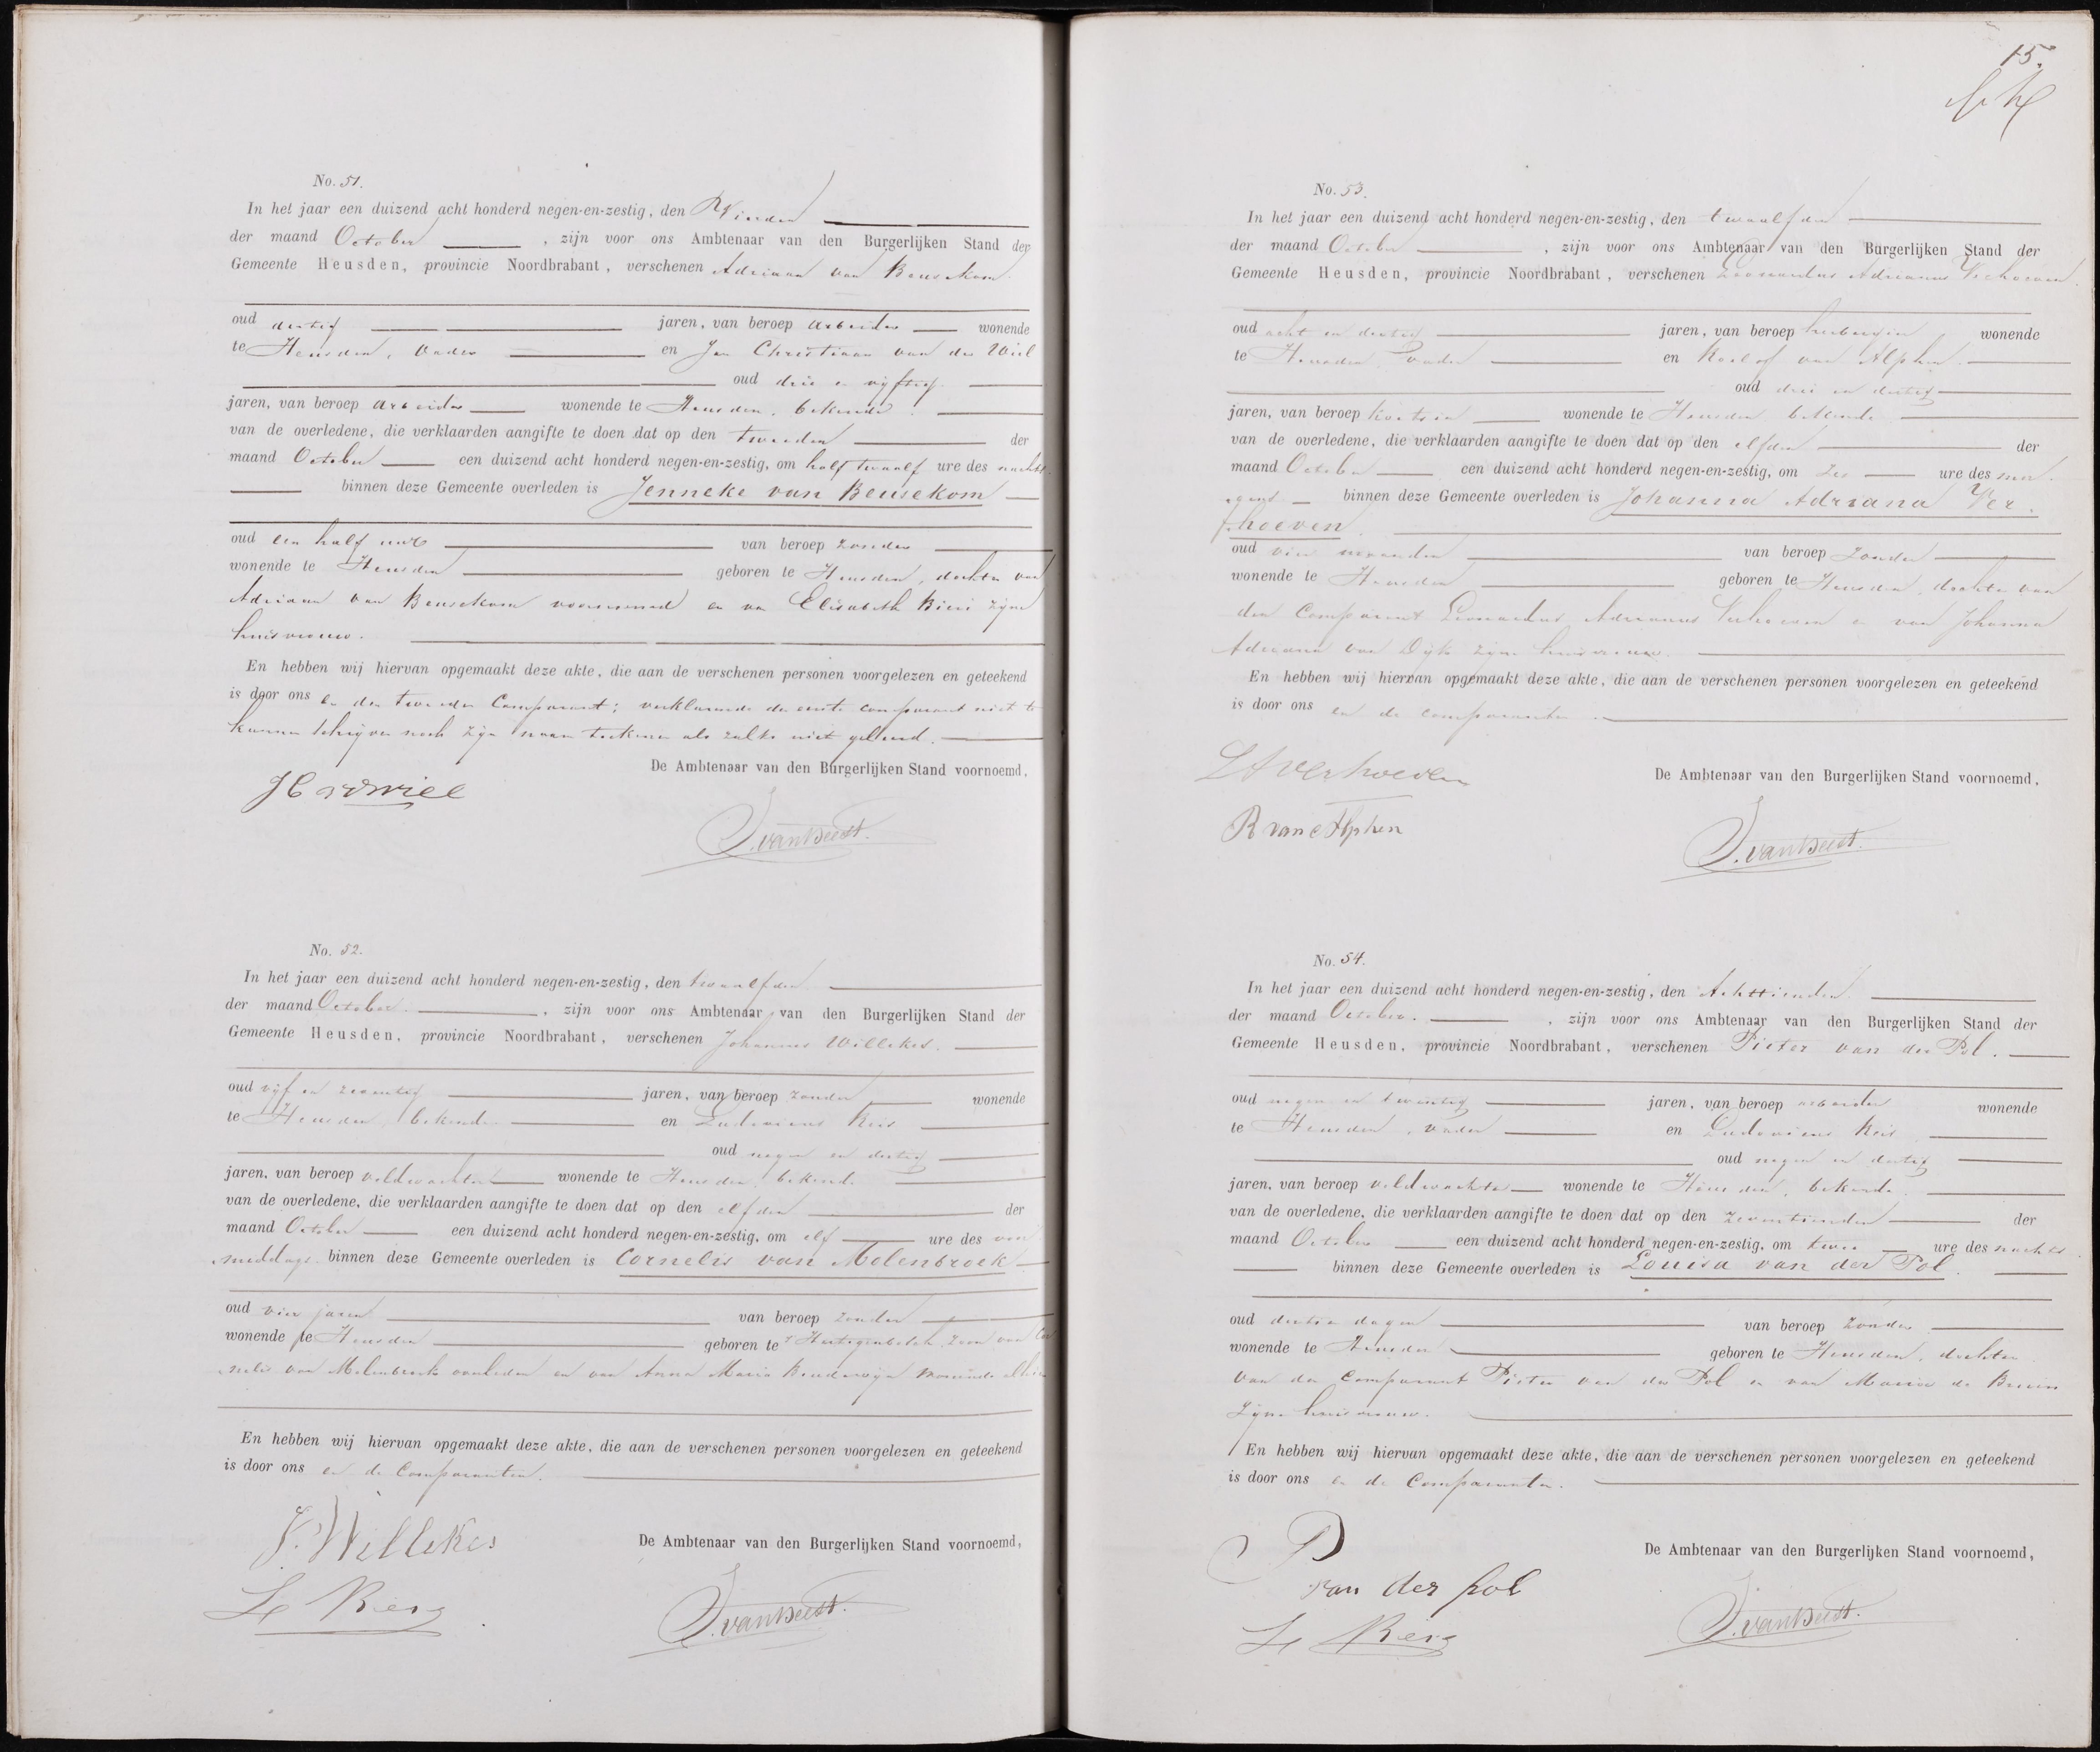 No. 51.
In het jaar een duizend acht honderd negen-en-zestig, den Vierden
der maand October, zijn voor ons Ambtenaar van den Burgerlijken Stand der
Gemeente Heusden, provincie Noordbrabant, verschenen Adriaan van Beusekom
oud dertig jaren, van beroep arbeider wonende
te Heusden, vader en Jan Christiaan van der Wiel
oud drie en vijftig
jaren, van beroep arbeider wonende te Heusden, bekende
van de overledene, die verklaarden aangifte te doen dat op den tweeden der
maand October een duizend acht honderd negen-en-zestig, om half twaalf ure des nachts
binnen deze Gemeente overleden is Jenneke van Beusekom
oud een half uur van beroep zonder
wonende te Heusden geboren te Heusden, dochter van
Adriaan van Beusekom voornoemd en van Elisabeth zijne
huisvrouw.
En hebben wij hiervan opgemaakt deze akte, die aan de verschenen personen voorgelezen en geteekend
is door ons en den tweeden Comparant; verklarende de eerste comparant niet te
kunnen schrijven noch zijn naam teekenen als zulks niet geleerd.
De Ambtenaar van den Burgerlijken Stand voornoemd,
J C vd Wiel
J. van Beest.
No. 52.
In het jaar een duizend acht honderd negen-en-zestig, den twaalfden
der maand October, zijn voor ons Ambtenaar van den Burgerlijken Stand der
Gemeente Heusden, provincie Noordbrabant, verschenen Johannes Willekes.
oud vijf en zeventig jaren, van beroep zonder wonende
te Heusden, bekende en Ludovicus
oud negen en dertig
jaren, van beroep veldwachter wonende te Heusden, bekende
van de overledene, die verklaarden aangifte te doen dat op den elfden der
maand October een duizend acht honderd negen-en-zestig, om elf ure des voor
middags binnen deze Gemeente overleden is Cornelis van Molenbroek
oud vier jaren van beroep zonder
wonende te Heusden geboren te 's Hertogenbosch, zoon van Cor
nelis van Molenbroek overleden en van Anna Maria wonende alhier
En hebben wij hiervan opgemaakt deze akte, die aan de verschenen personen voorgelezen en geteekend
is door ons en de Comparanten.
De Ambtenaar van den Burgerlijken Stand voornoemd,
J. Willekes
J. van Beest.
15.
No. 53.
In het jaar een duizend acht honderd negen-en-zestig, den twaalfden
der maand October, zijn voor ons Ambtenaar van den Burgerlijken Stand der
Gemeente Heusden, provincie Noordbrabant, verschenen Leonardus Adrianus Verhoeven
oud acht en dertig jaren, van beroep herbergier wonende
te Heusden vader en Roelof van Alphen
oud drie en dertig
jaren, van beroep koetsier wonende te Heusden bekende
van de overledene, die verklaarden aangifte te doen dat op den elfden der
maand October een duizend acht honderd negen-en-zestig, om zes ure des mor
gens binnen deze Gemeente overleden is Johanna Adriana Ver
hoeven
oud vier maanden van beroep zonder
wonende te Heusden geboren te Heusden, dochter van
den Comparant Leonardus Adrianus Verhoeven en van Johanna
Adriana van Dijk zijne huisvrouw.
En hebben wij hiervan opgemaakt deze akte, die aan de verschenen personen voorgelezen en geteekend
is door ons en de comparanten.
L A Verhoeven
De Ambtenaar van den Burgerlijken Stand voornoemd,
R van Alphen
J. van Beest.
No. 54.
In het jaar een duizend acht honderd negen-en-zestig, den Achttienden
der maand October, zijn voor ons Ambtenaar van den Burgerlijken Stand der
Gemeente Heusden, provincie Noordbrabant, verschenen Pieter van der Pol.
oud negen en twintig jaren, van beroep arbeider wonende
te Heusden, vader en Ludovicus
oud negen en dertig
jaren, van beroep veldwachter wonende te Heusden, bekende
van de overledene, die verklaarden aangifte te doen dat op den zeventienden der
maand October een duizend acht honderd negen-en-zestig, om twee ure des nachts
binnen deze Gemeente overleden is Louisa van der Pol.
oud dertien dagen van beroep zonder
wonende te Heusden geboren te Heusden, dochter
van den Comparant Pieter van der Pol en van Maria de Bruin
zijne huisvrouw.
En hebben wij hiervan opgemaakt deze akte, die aan de verschenen personen voorgelezen en geteekend
is door ons en de Comparanten.
De Ambtenaar van den Burgerlijken Stand voornoemd,
P van der Pol
J. van Beest.